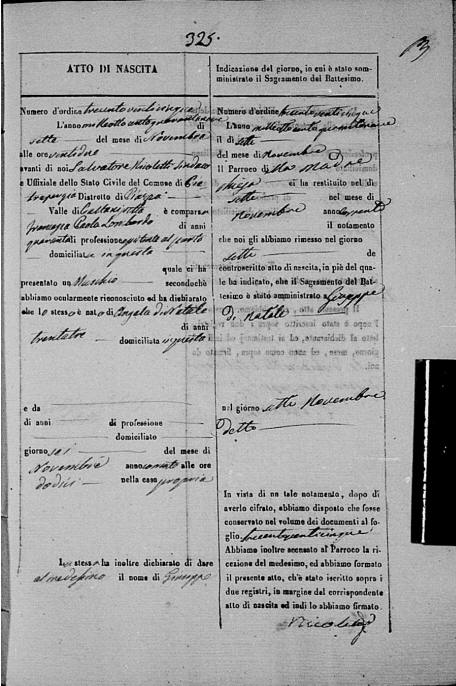 325.
ATTO DI NASCITA
Numero d'ordine trecentoventicinque
L'anno milleottocentoquarantanove di
sette del mese di Novembre
alle ore ventidue
avanti di noi Salvatore Nicoletti Sindaco
e Uffiziale dello Stato Civile del Comune di Pie
traperzia Distretto di Piazza
Valle di Caltanissetta è comparsa
Francesca Paola Lombardo di anni
quaranta di professione
domiciliata in questa
quale ci ha
presentato un Maschio secondochè
abbiamo ocularmente riconosciuto ed ha dichiarato
che lo stesso è nato di di Natale
di anni
trentatre domiciliata in questa
e da
di anni di professione
domiciliato
giorno sei del mese di
Novembre anno corrente alle ore
dodici nella casa propria
La stessa ha inoltre dichiarato di dare
al medesimo il nome di Giuseppe
Indicazione del giorno, in cui è stato som-
ministrato il Sagramento del Battesimo.
Numero d'ordine trecentoventicinque
L'anno milleottocentoquarantanove
il dì sette
del mese di Novembre
Il Parroco di Madre
Chiesa ci ha restituito nel dì
sette nel mese di
Novembre anno corrente
il notamento
che noi gli abbiamo rimesso nel giorno
sette del
controscritto atto di nascita, in piè del quale
ha indicato, che il Sagramento del Bat-
tesimo è stato amministrato a Giuseppe
di Natale
nel giorno sette Novembre
detto
In vista di un tale notamento, dopo di
averlo cifrato, abbiamo disposto che fosse
conservato nel volume dei documenti al fo-
glio trecentoventicinque
Abbiamo inoltre accusato al Parroco la ri-
cezione del medesimo, ed abbiamo formato
il presente atto, ch'è stato iscritto sopra i
due registri, in margine del corrispondente
atto di nascita ed indi lo abbiamo firmato.